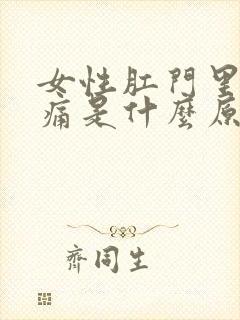 女性肛門里
痛是什麼原
齊同生